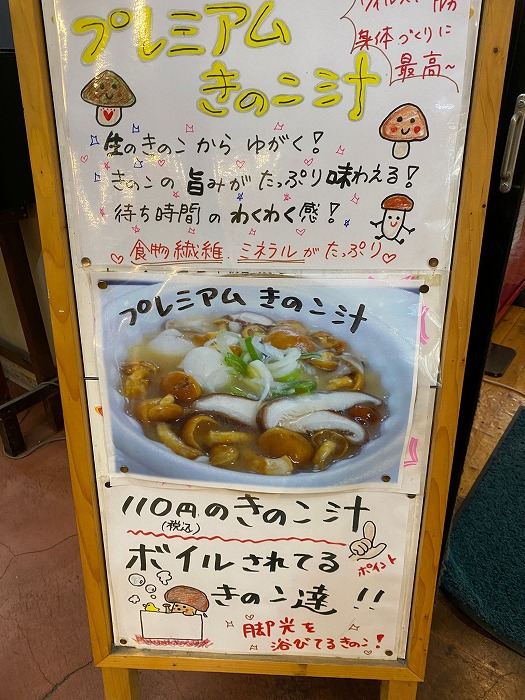 プレミアム
きのこ汁
身体づくりに
最高~
生のきのこから ゆがく!
きのこの 旨みが たっぷり味わえる!
待ち時間のわくわく感!
食物繊維 ミネラルが たっぷり♡
プレミアム きのこ汁
110円のきのこ汁
(税込)
ボイルされてる
ポイント
きのこ達!!
脚光を
浴びてるきのこ!